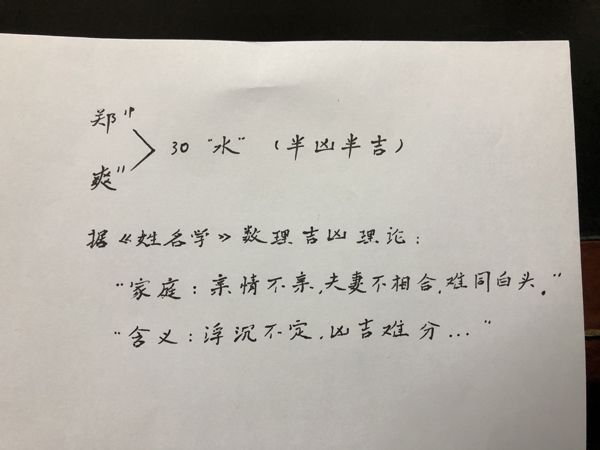 郑19
30 "水" (半凶半吉)
爽11
据《姓名学》数理吉凶理论:
"家庭:亲情不亲,夫妻不相合,难同白头。"
"含义:浮沉不定,凶吉难分..."